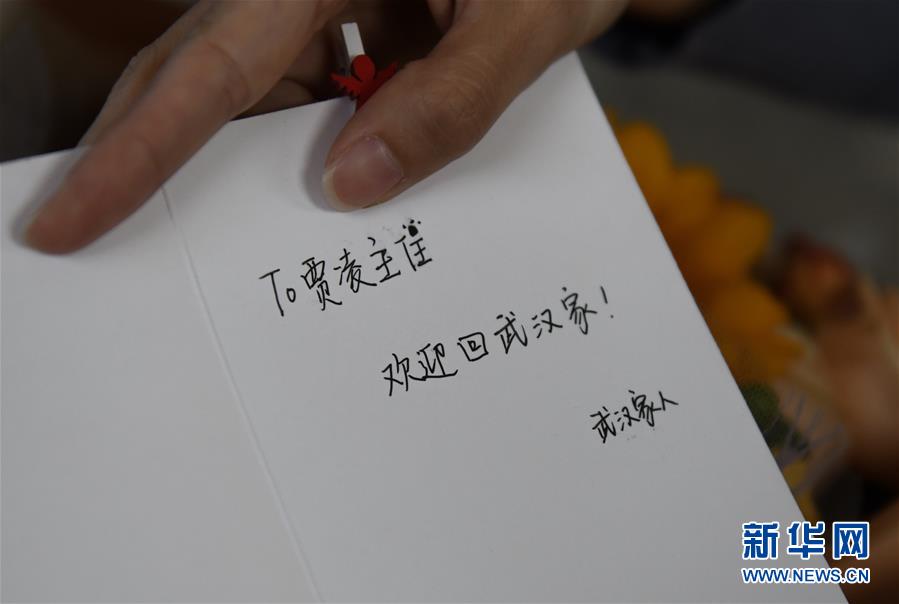 To 贾凌主任
欢迎回武汉家!
武汉家人
新华网
WWW.NEWS.CN